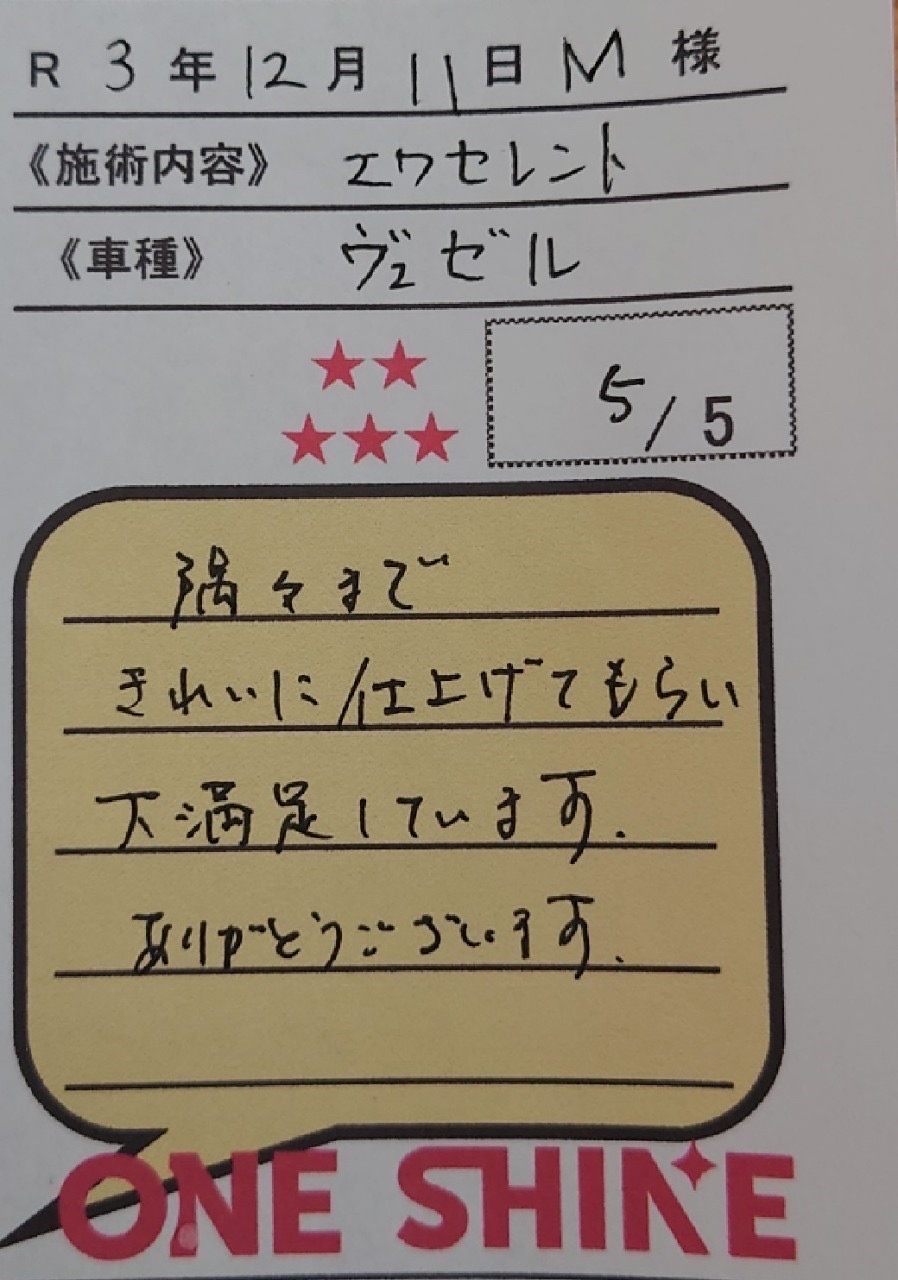 R 3年12月11日M様
《施術内容》 エクセレント
《車種》 ヴェゼル
5/5
隅々まで
きれいに仕上げてもらい
大満足しています.
ありがとうございます.
ONE SHINE